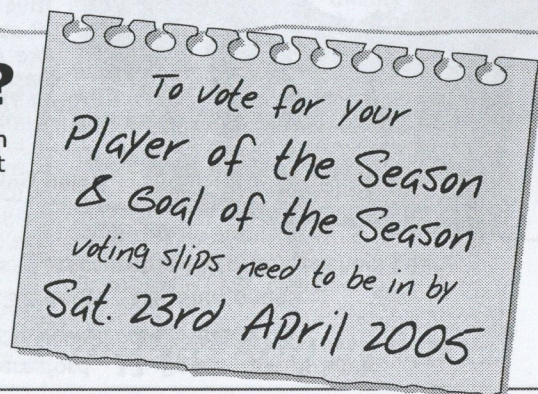 ?
n
t
To vote for your
Player of the Season
& Goal of the Season
voting slips need to be in by
Sat. 23rd April 2005